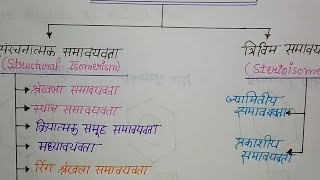 संरचनात्मक समावयवता
(Structural Isomerism)
श्रंखला समावयवता
स्थान समावयवता
क्रियात्मक समूह समावयवता
मध्यावयवता
रिंग श्रंखला समावयवता
त्रिविम समावय
(Stereoisome
ज्यामितीय
समावयवता
प्रकाशीय
समावयवता